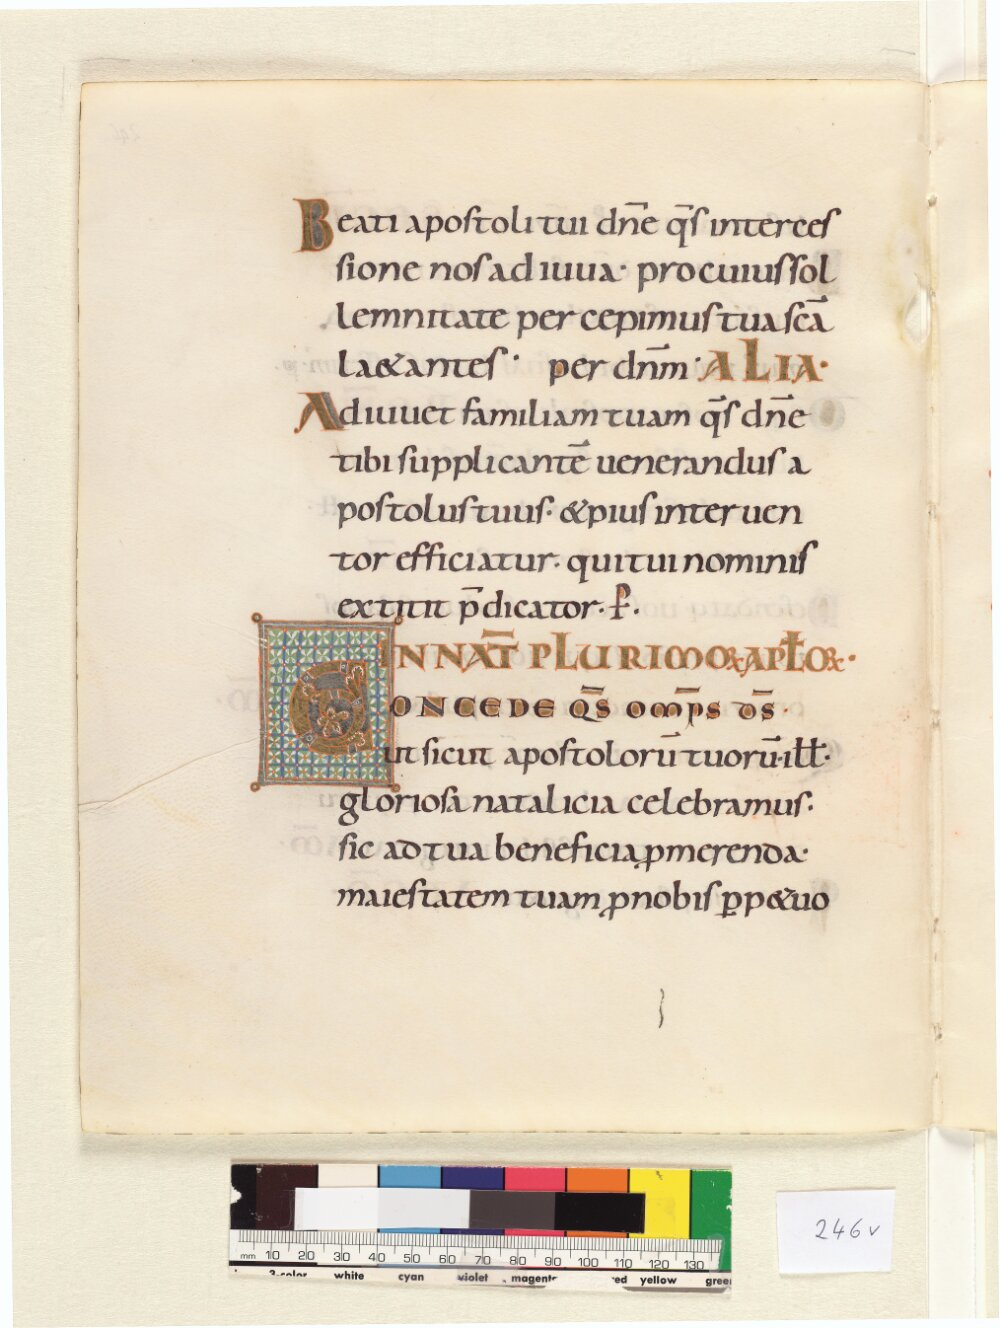 Beati apostoli tui dn̄e q̄s interces
sione nos adiuua· pro cuius sol
lemnitate percepimus tua sc̄a
la&antes· per dn̄m· ALIA·
Adiuuet familiam tuam q̄s dn̄e
tibi supplicantē uenerandus a
postolus tuus· & pius interuen
tor efficiatur· qui tui nominis
extitit p̄dicator· P̄·
IN NAT̄ PLURIMOꝜ APŁOꝜ·
CONCEDE Q̄S OMP̄S D̄S·
ut sicut apostolorū tuorū· ill̄·
gloriosa natalicia celebramus·
sic ad tua beneficia ꝓmerenda·
maiestatem tuam ꝓ nobis ꝑp&uo
246v
mm 10 20 30 40 50 60 70 80 90 100 110 120 130
3-color white cyan violet magenta red yellow green